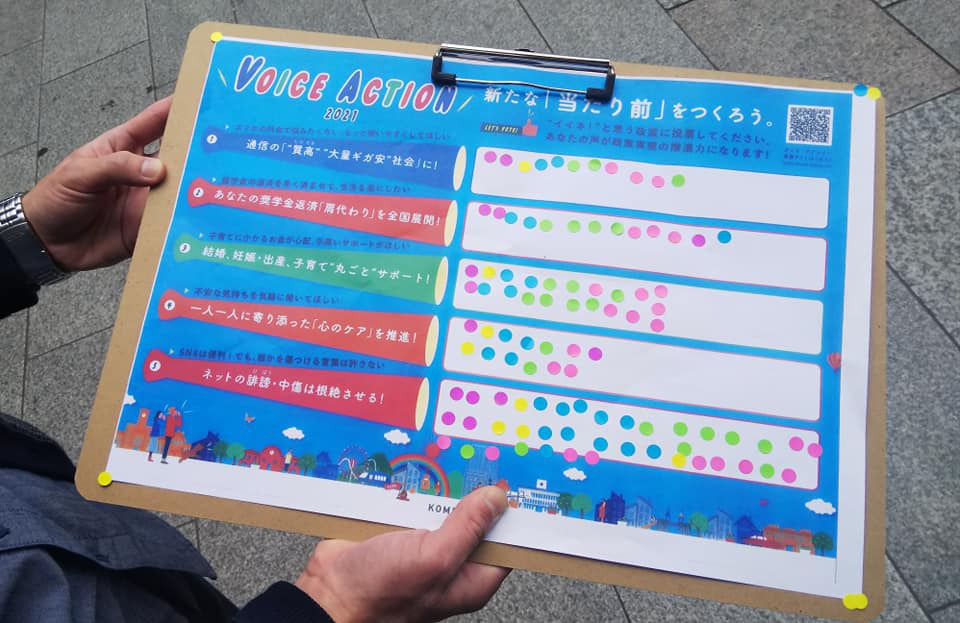 VOICE ACTION
2021
新たな「当たり前」をつくろう。
LET'S VOTE!
"イイネ!"と思う政策に投票してください。
あなたの声が政策実現の推進力になります!
1
通信の「"質高""大量ギガ安"社会」に!
奨学金の返済を早く済ませて、生活を楽にしたい
2
あなたの奨学金返済「肩代わり」を全国展開!
子育てにかかるお金が心配。手厚いサポートがほしい
3
結婚、妊娠・出産、子育て"丸ごと"サポート!
不安な気持ちを気軽に聞いてほしい
4
一人一人に寄り添った「心のケア」を推進!
SNSは便利!でも、誰かを傷つける言葉は許さない
5
ネットの誹謗・中傷は根絶させる!
ひぼう
KOME